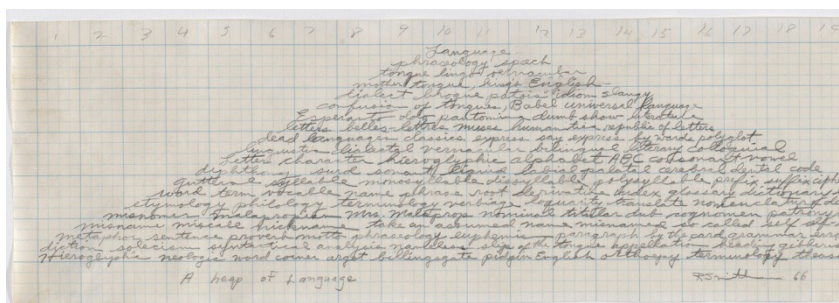 1 2 3 4 5 6 7 8 9 10 11 12 13 14 15 16 17 18 19
Language
phraseology speech
tongue lingo vernacular
mother tongue, King's English
dialect brogue patois idiom slang
confusion of tongues, Babel universal language
Esperanto Ido pantomime dumb show literature
letters belles-lettres muses humanities, republic of letters
dead languages classics express say express by words polyglot
linguistic dialectal vernacular bilingual literary colloquial
letter character hieroglyphic alphabet ABC consonant vowel
diphthong surd sonant liquid labial palatal cerebral dental
guttural syllable monosyllable dissyllable polysyllable prefix suffix
word term vocable name phrase root derivative index glossary dictionary
etymology philology terminology verbiage loquacity translate nomenclature
misnomer malapropism Mrs. Malaprop nominal titular dub cognomen
misname miscall nickname take an assumed name misnamed so-called self
metaphor sentence proverb motto phraseology euphemism paragraph
diction solecism syntactical analysis nameless slip of the tongue appellation heading
Hieroglyphic neologic word corner argot billingsgate pidgin English orthoepy terminology
A heap of Language
RSmithson 66